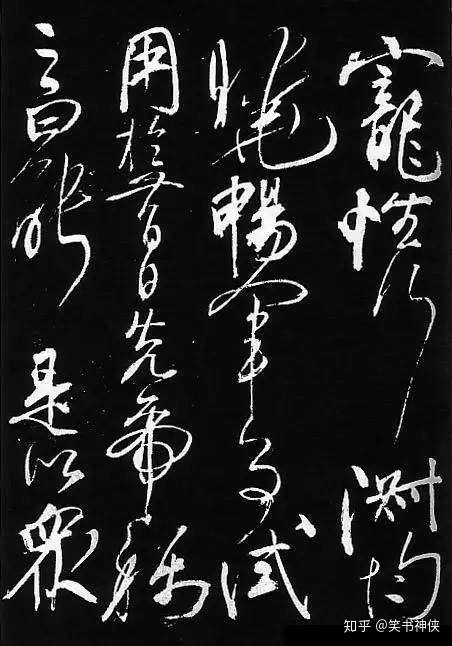 寵性行淑均
曉暢軍事試
用於昔日先帝稱
之曰能是以衆
知乎 @笑书神侠